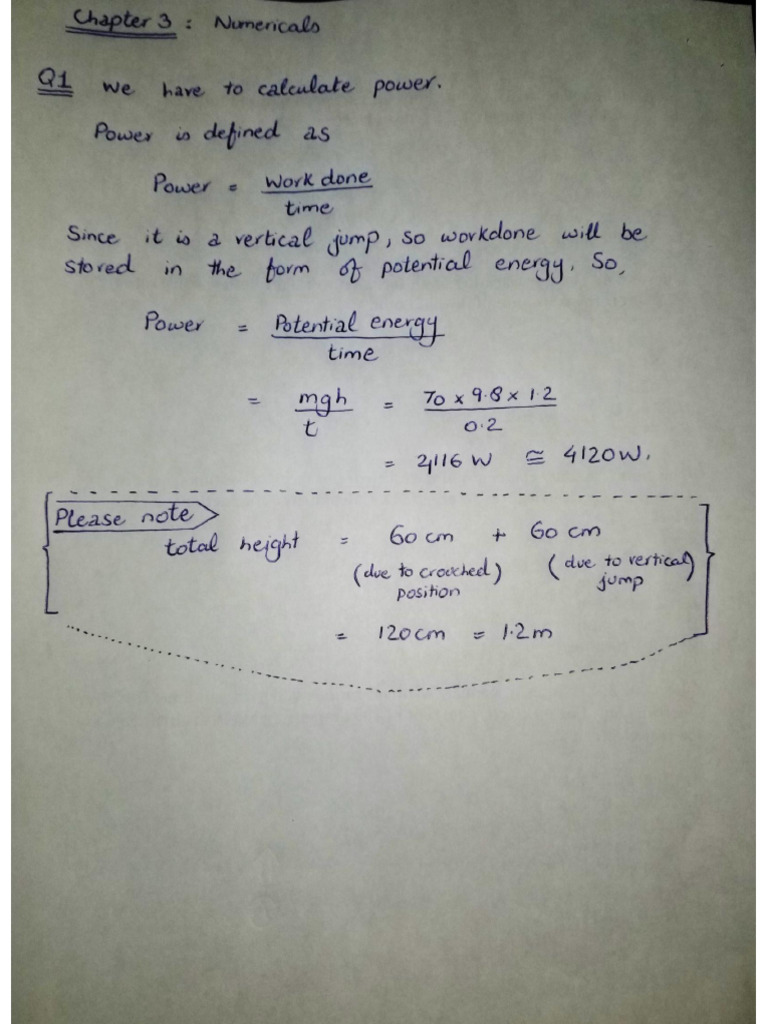 Chapter 3 : Numericals
Q1 We have to calculate power.
Power is defined as
Power = Work done / time
Since it is a vertical jump, so workdone will be
stored in the form of potential energy. So,
Power = Potential energy / time
= mgh / t = 70 x 9.8 x 1.2 / 0.2
= 4116 W ≅ 4120W.
Please note
total height = 60 cm + 60 cm
(due to crouched position) (due to vertical jump)
= 120cm = 1.2m